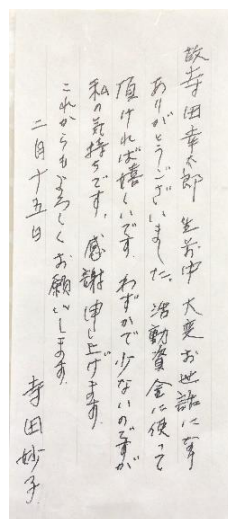 故寺田幸太郎 生前中 大変お世話になり
ありがとうございました。活動資金に使って
頂ければ嬉しいです。わずかで少ないのですが
私の気持ちです。感謝申し上げます。
これからもよろしくお願いします。
二月十五日
寺田妙子